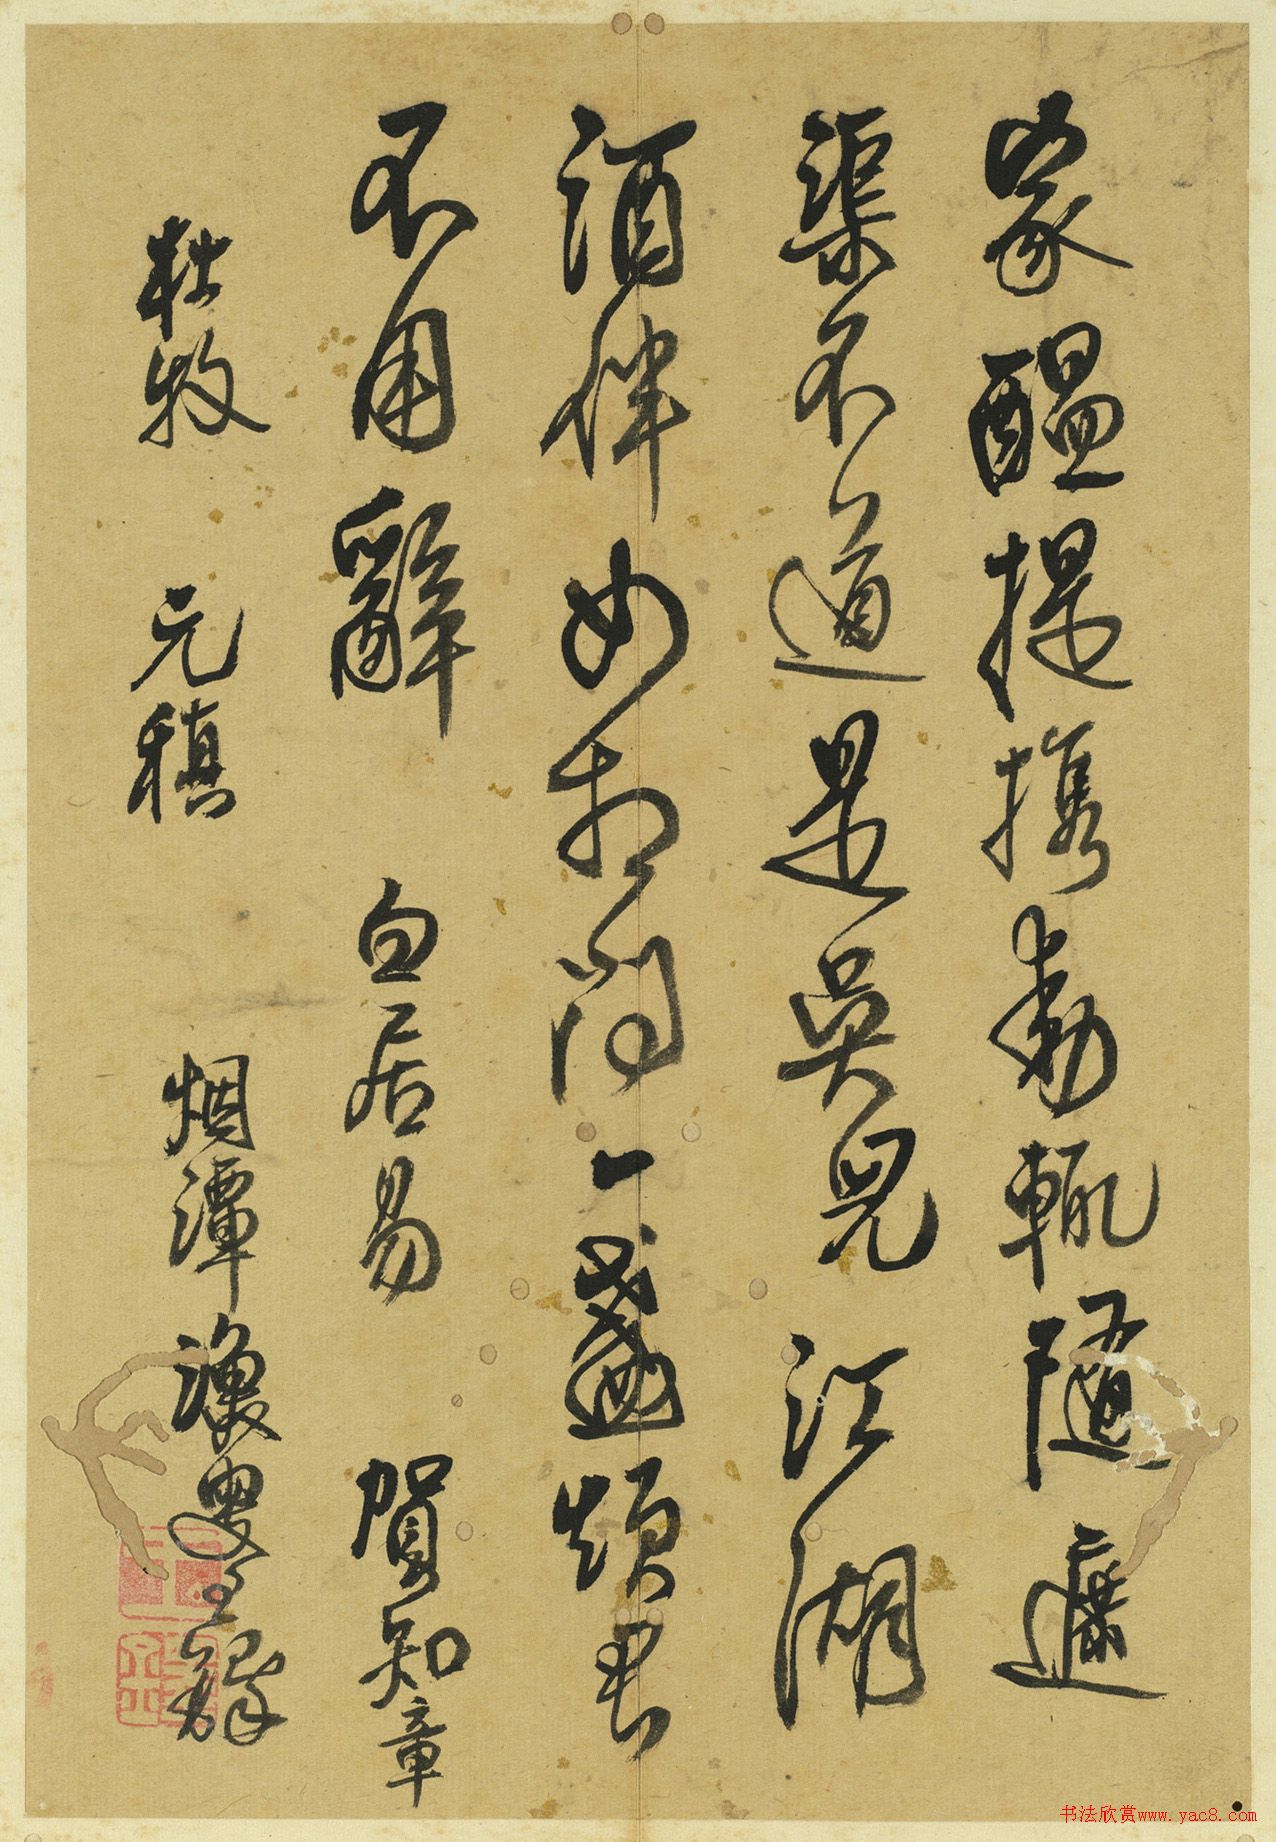 家醖提携動輒隨遮
渠不道是吳兒江湖
酒伴如相問一盞煩君
不用辭 白居易 賀知章
杜牧 元稹 烟潭漁叟王鐸
书法欣赏www.yac8.com